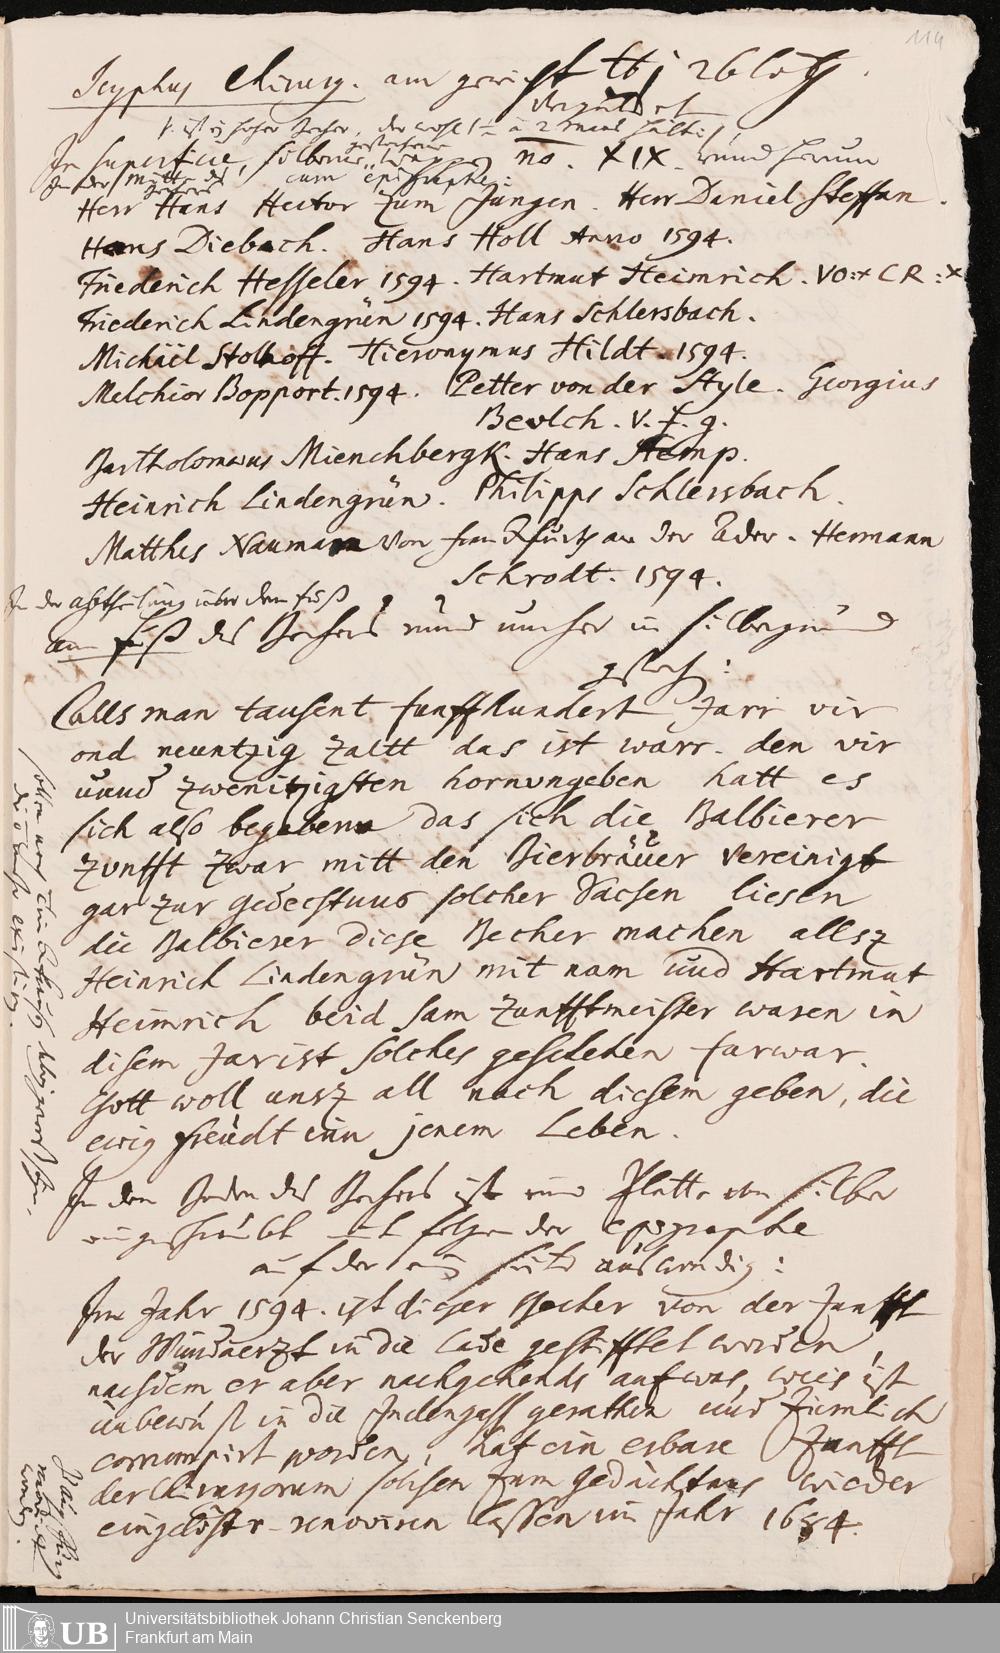 114
Scyphus Chirurg. am gewicht ℔ j 26 loth
vergüldet
ist ein hoher Becher, der wohl 1½ à 2 maas hält
In superficie, silberne no. XIX. rund herum
In der mitte des Bechers cum epigraphe:
Herr Hans Hector zum Jungen. Herr Daniel Steffan.
Hans Diebach. Hans Holl Anno 1594.
Friederich Hesseler 1594. Hartmut Heimrich. VO:* CR:*
Friederich Lindengrün 1594. Hans Schlersbach.
Michäel Stolhoff. Hieronymus Hildt. 1594.
Melchior Bopport. 1594. Petter von der Style. Georgius
Beulch. V. F. g.
Bartholomæus Mienchbergk. Hans Stemp.
Heinrich Lindengrün. Philipps Schlersbach.
Matthes Naumann von franckfurth an der Oder. Hermann
Schrodt. 1594.
In der abtheilung über dem fuß
am fuß des Bechers rund umher in silbergrund
gestoch:
Calls man tausent funffhundert Jarr vir
ond neuntzig zaltt das ist warr. den vir
uund zwenitzigsten hornungeben hatt es
sich also begeben das sich die Balbierer
zunfft zwar mitt den Bierbräuer vereinigt
gar zur gedechtnus solcher Sachen liesen
die Balbierer diese Becher machen allsz
Heinrich Lindengrün mit nam und Hartmut
Heimrich beid sam zunfftmeister waren in
disem Jar ist solches geschehen farwar.
Gott woll unsz all nach diesem geben, die
ewig freudt inn jenem Leben.
In dem Boden des Bechers ist eine Platte von silber
eingeschraubt mit folgender epigraphe
auf der ein seite auswendig:
Im Jahr 1594. ist dieser Becher von der Zunfft
der Wundaerzt in die Lade gestifftet worden,
nachdem er aber nachgehends auf was, weis ist
unbewust in die Judengass gerathen und ziemlich
corrumpirt worden, hat ein erbare Zunfft
der Chirurgorum solchen zum Gedächtnus wieder
eingelöst renoviren lassen im Jahr 1684.
Universitätsbibliothek Johann Christian Senckenberg
UB
Frankfurt am Main